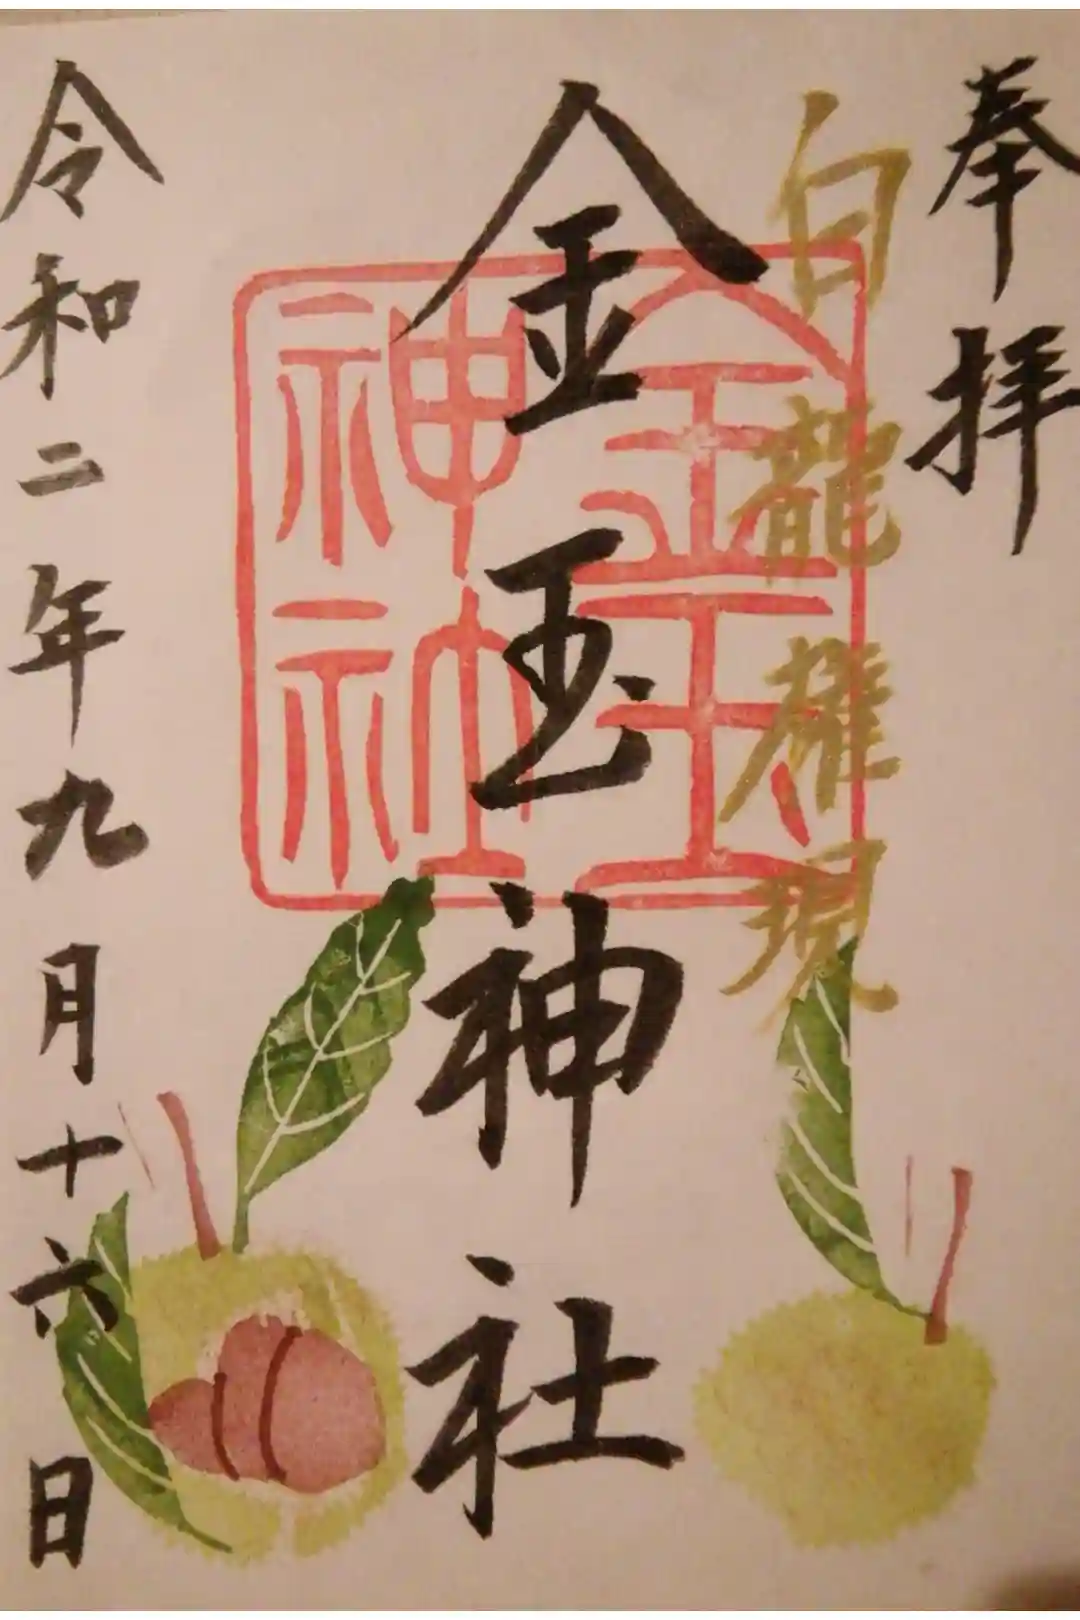 奉拝
白龍権現
金玉神社
金玉
神社
令和二年九月十六日